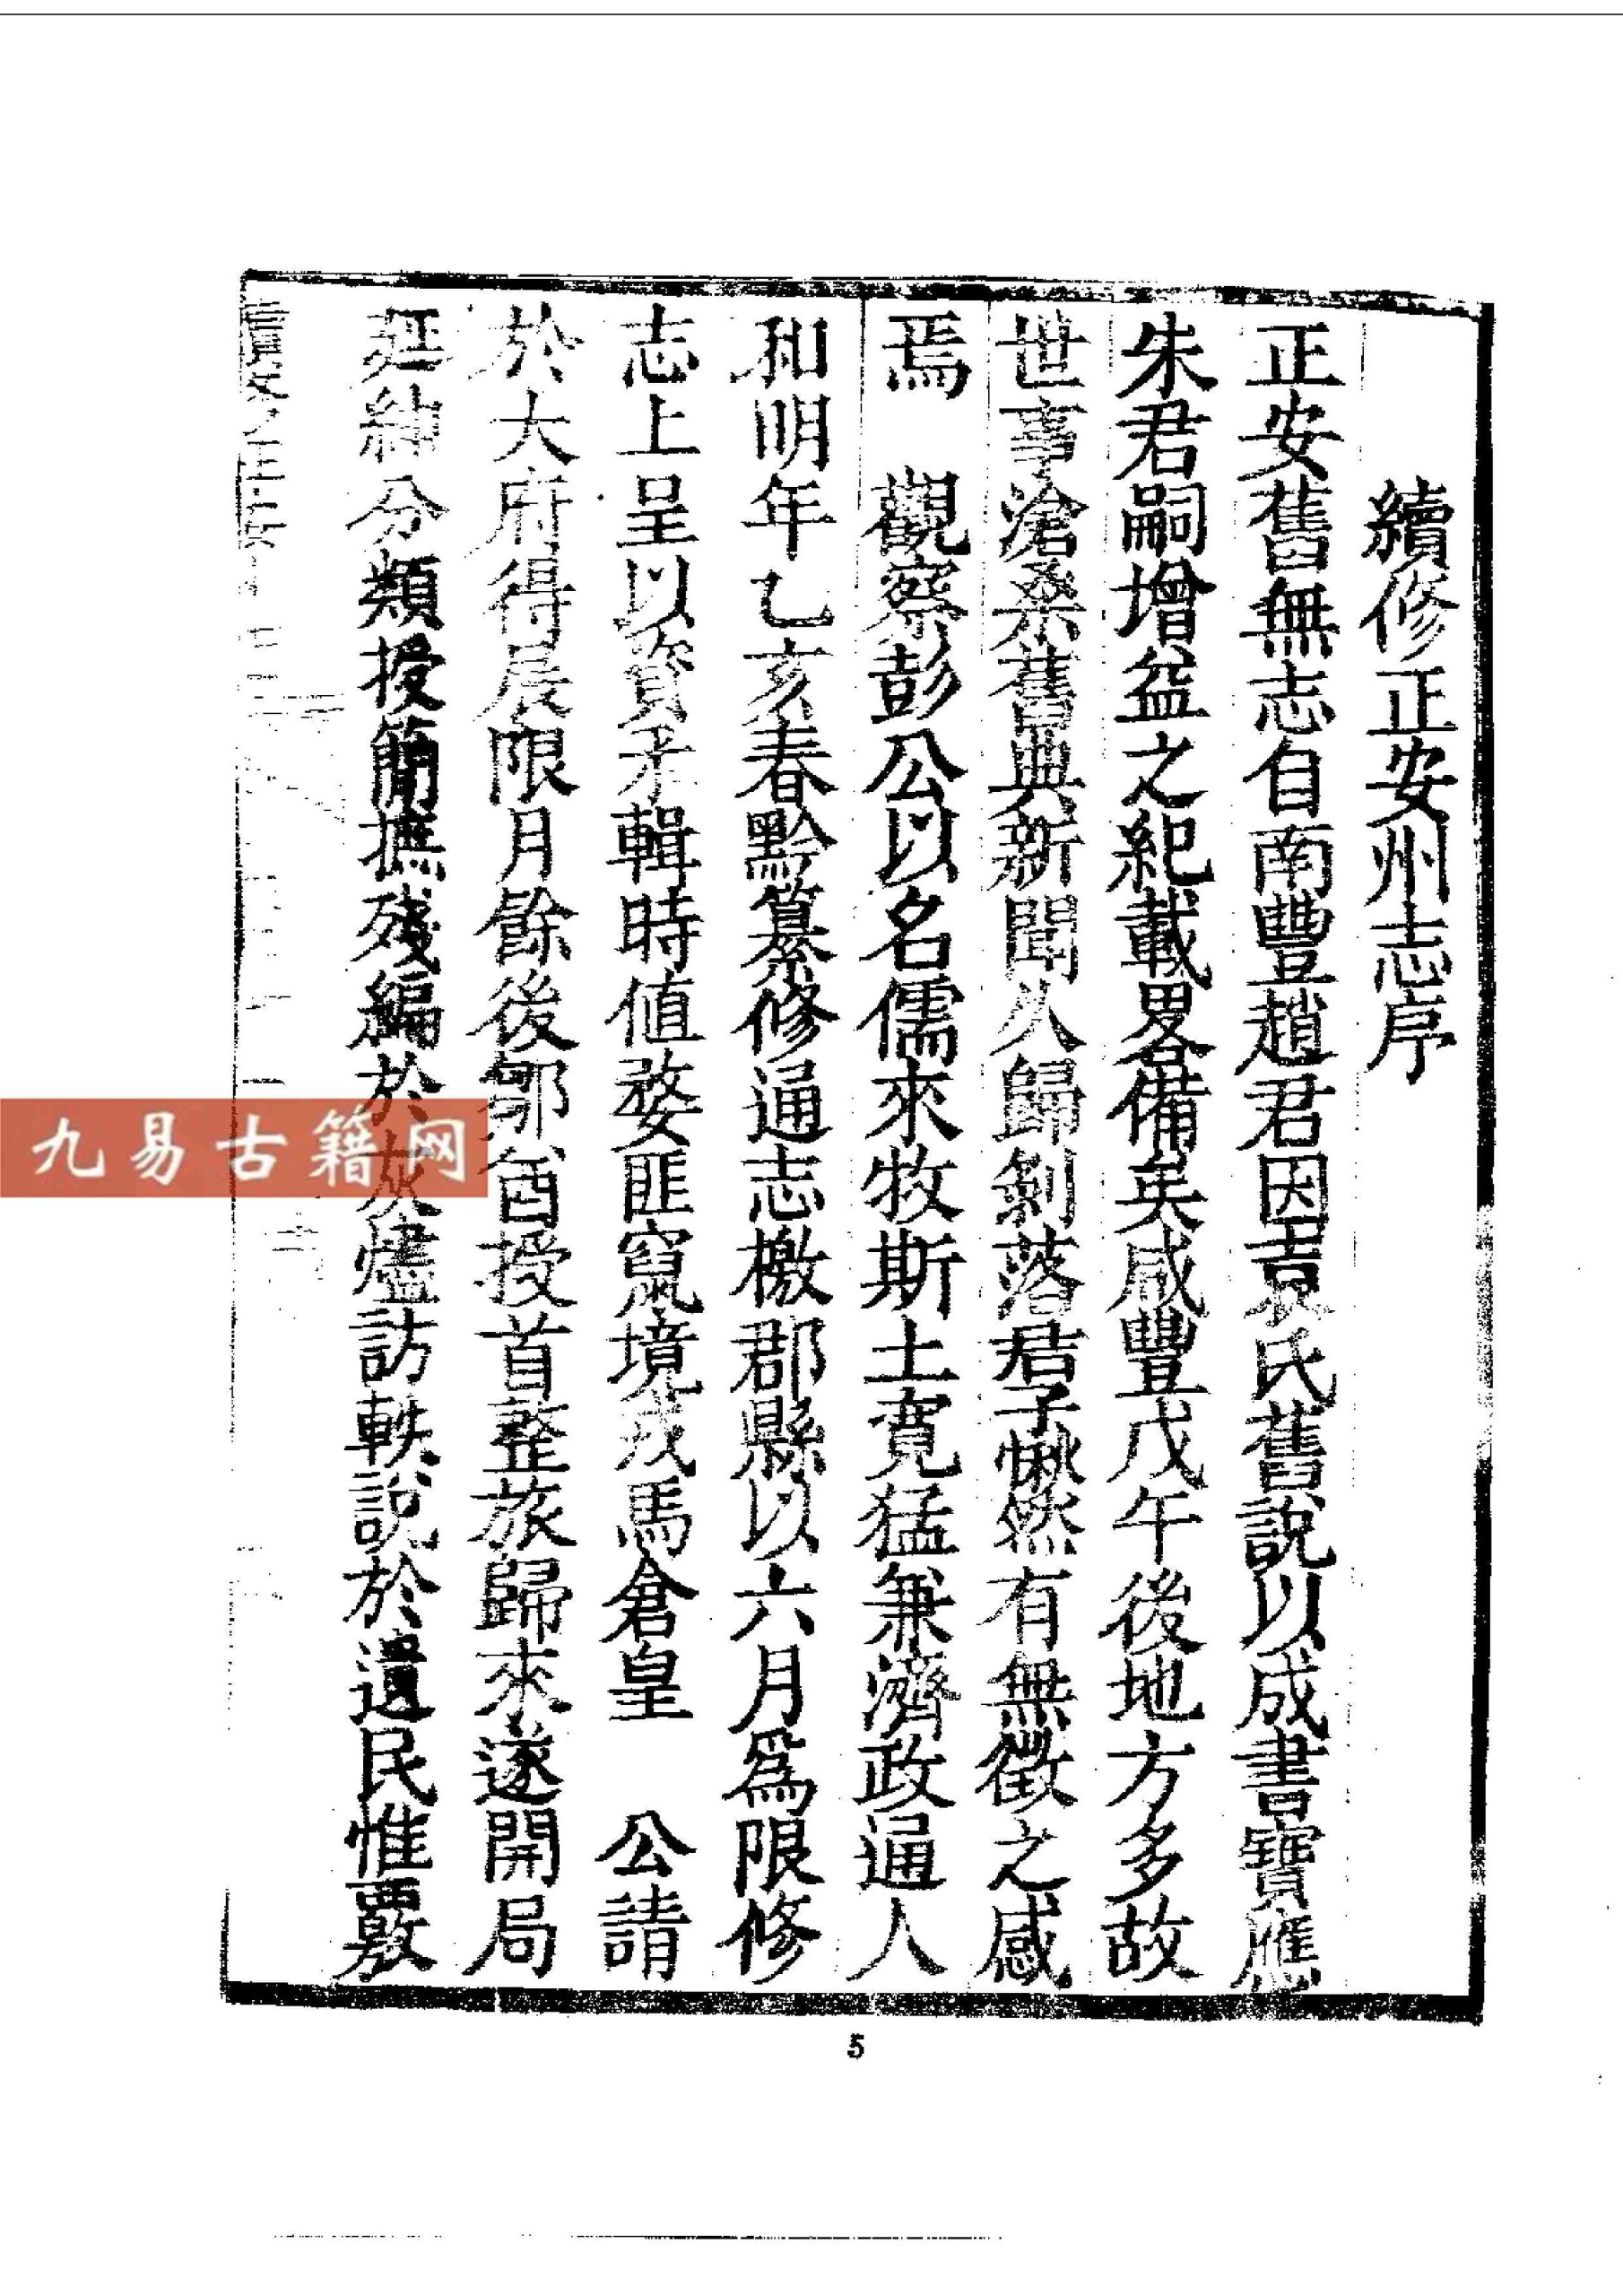 續修正安州志序
正安舊無志自南豐趙君因袁氏舊說以成書寶應
朱君嗣增益之紀載畧備矣咸豐戊午後地方多故
世事滄桑舊典新聞久歸剝落君子愀然有無徵之感
焉　觀察彭公以名儒來牧斯土寬猛兼濟政通人
和明年乙亥春黔纂修通志檄郡縣以六月爲限修
志上呈以資采輯時値婺匪竄境戎馬倉皇　公請
於大府得展限月餘後鄒酋授首整旅歸來遂開局
延紳分類授簡摭殘編於灰燼訪軼說於遺民惟覈
續修正安
5
九易古籍网